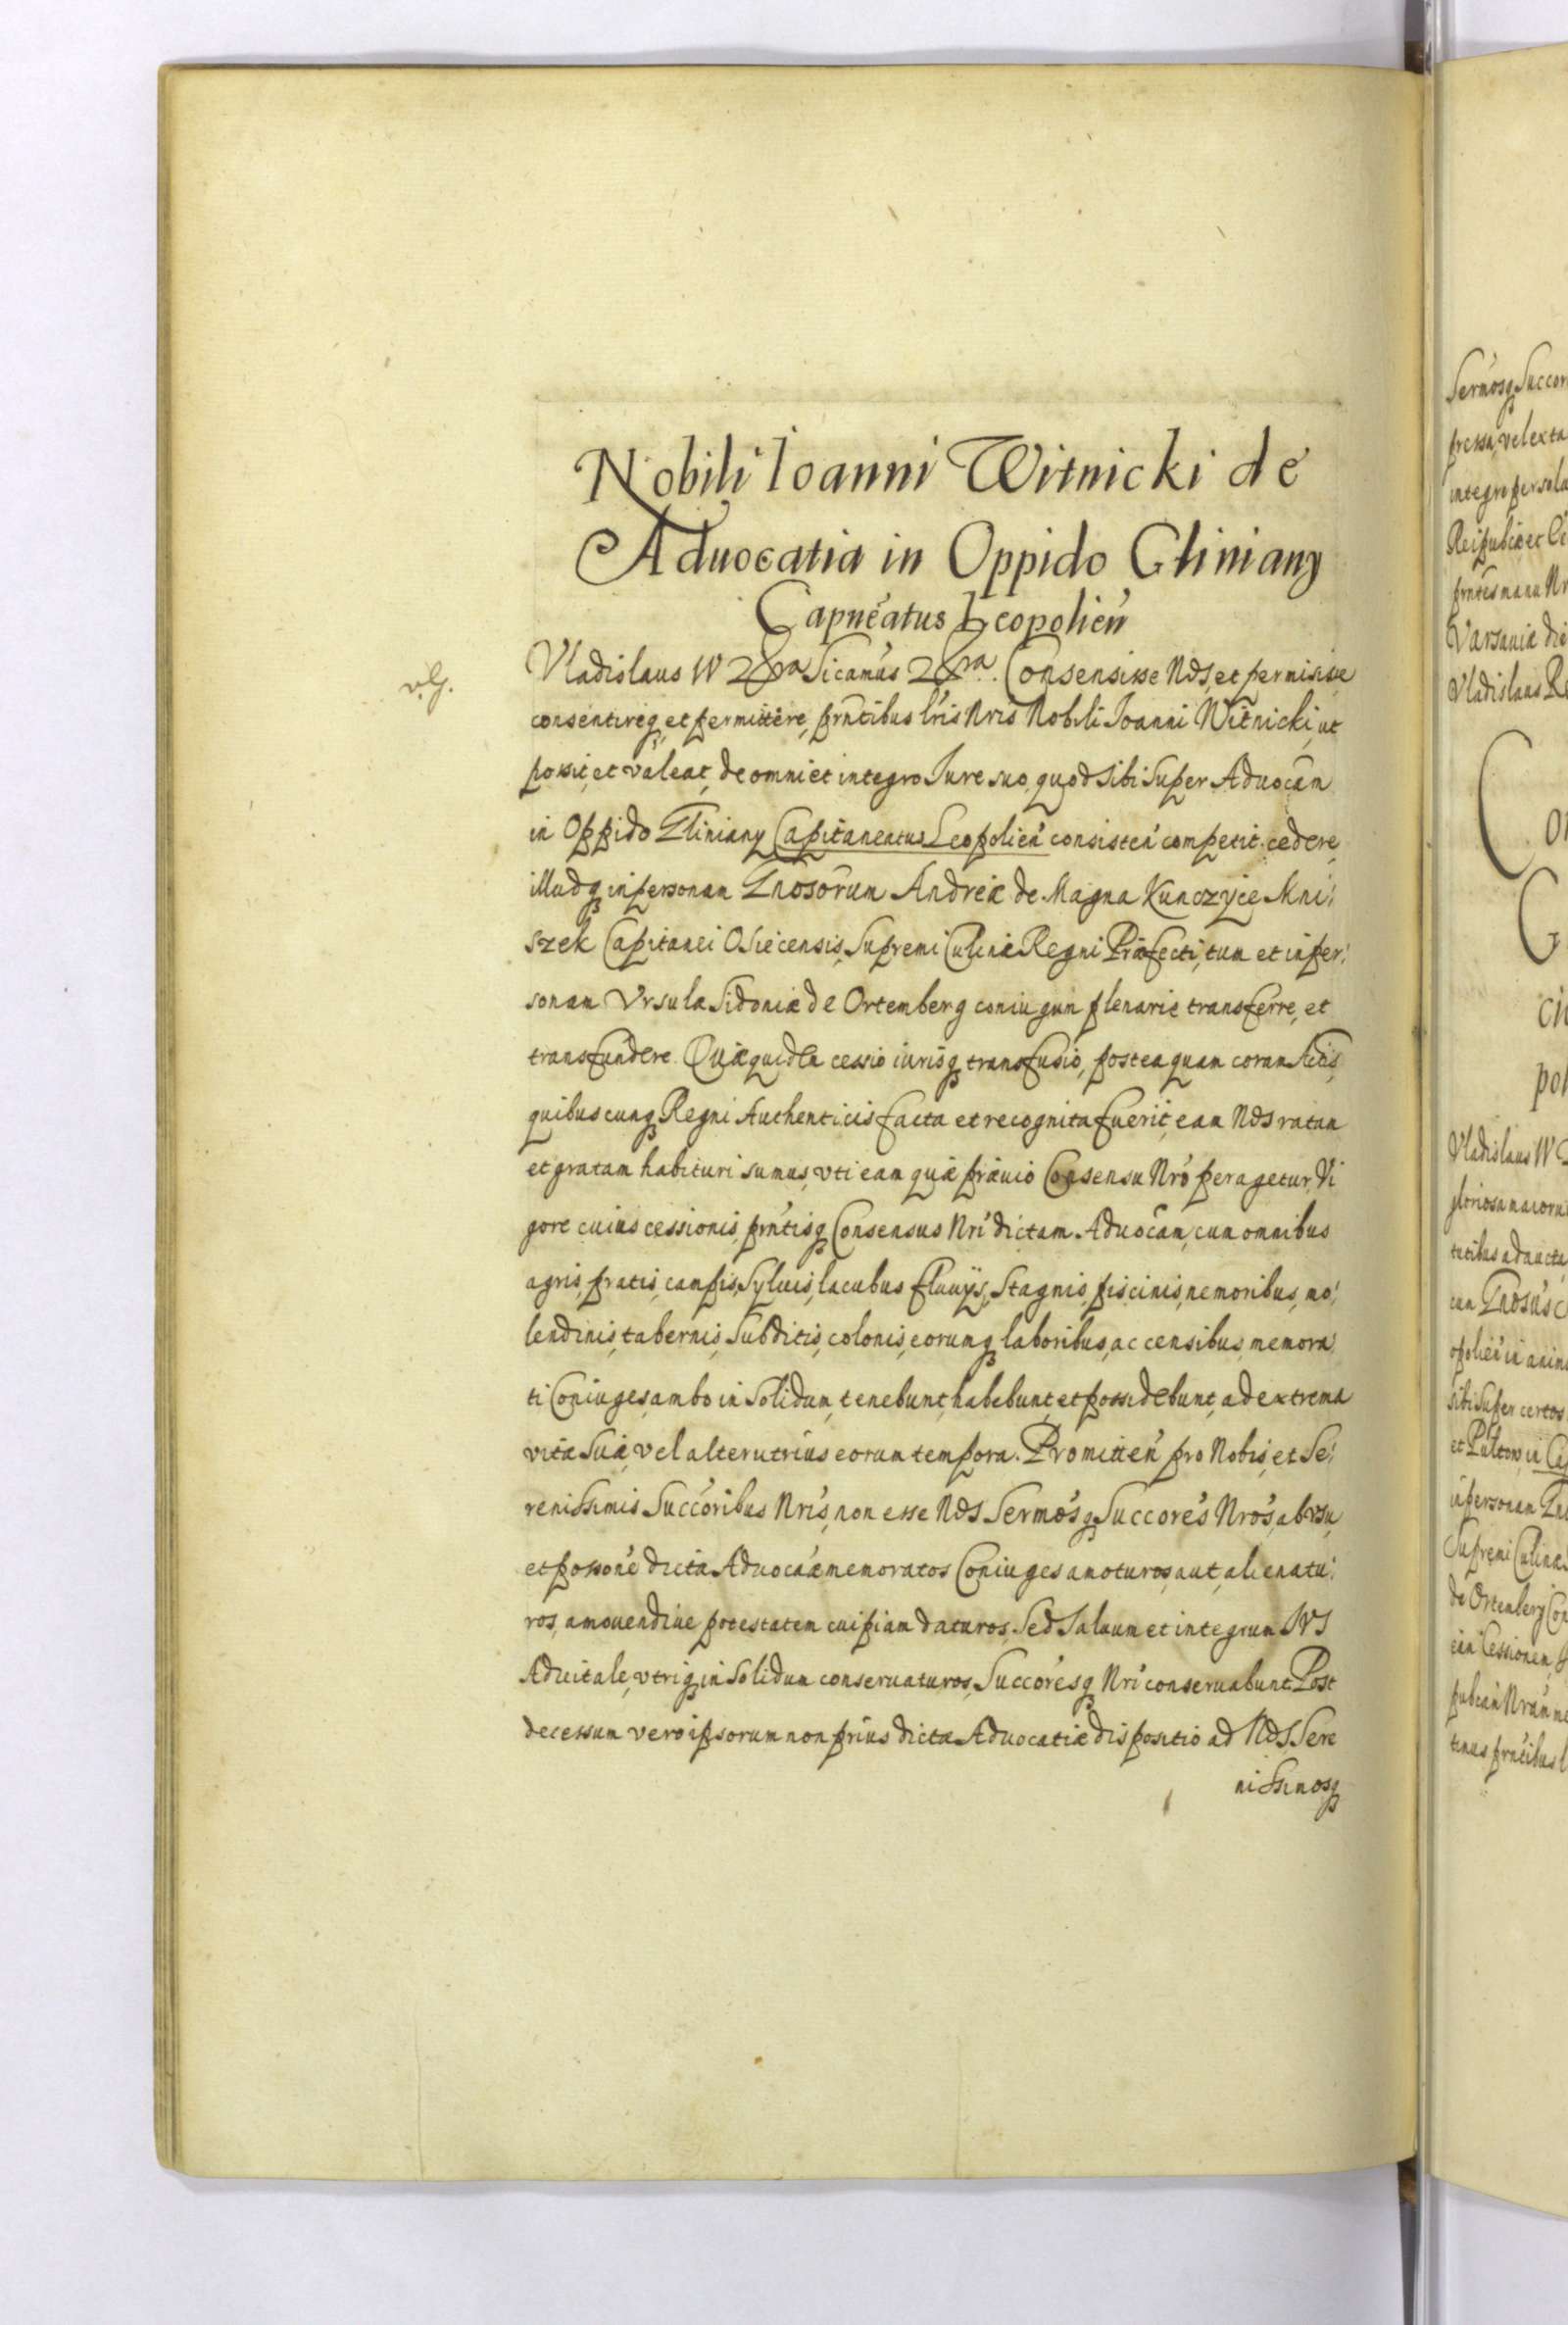 Nobili Ioanni Witnicki de
Aduocatia in Oppido Gliniany
Capneatus Leopolień
Vladislaus IV 2Xra Sicamus 2Xra. Consensisse Nos, et permisisse
consentireq, et permittere, prntibus lris Nris Nobili Joanni Witnicki, ut
possit, et valeat, de omni et integro Jure suo, quod sibi super Aduocān
in Oppido Gliniany Capitaneatus Leopolień consisteń competit, cedere,
illudq in personam Gnosorum Andreæ de Magna Kunczyce Mni:
szek Capitanei Osiecensis, Supremi Culinæ Regni Præfecti, tum et in per:
sonam Vrsulæ Sidoniæ de Ortemberg coniugum plenarie transferre, et
transfundere. Quæ quidem cessio iurisq transfusio, postea quam coram Actis
quibuscunq Regni Authenticis facta et recognita fuerit, eam Nos ratam
et gratam habituri sumus, vti eam quæ præuio Consensu Nro peragetur, Vi
gore cuius cessionis, prntisq Consensus Nri dictam Aduocān, cum omnibus
agris, pratis, campis, Syluis, lacubus fluuijs, Stagnis, piscinis, nemoribus, mo:
lendinis, tabernis, Subditis, colonis, eorumq laboribus, ac censibus, memora
ti Coniuges, ambo in solidum, tenebunt, habebunt, et possidebunt, ad extrema
vitæ suæ, vel alterutrius eorum tempora. Promitteń pro Nobis, et Se:
renissimis Succoribus Nris, non esse Nos Sermosq Succores Nros, ab vsu,
et possone dictæ Aduocaæ memoratos Coniuges amoturos, aut, alienatu:
ros, amouendiue potestatem cuipiam daturos, Sed Saluum et integrum IVS
Aduitale, vtriq in Solidum conseruaturos, Succoresq Nri conseruabunt. Post
decessum vero ipsorum non prius dictæ Aduocatiæ dispositio ad Nos, Sere
nissimosq
Sermosq Succor
integre persolu
Varsauiæ die
Vladislaus
Vladislaus IV
sibi super certos
in personam
Supremi Culinæ
de Ortenberg Con